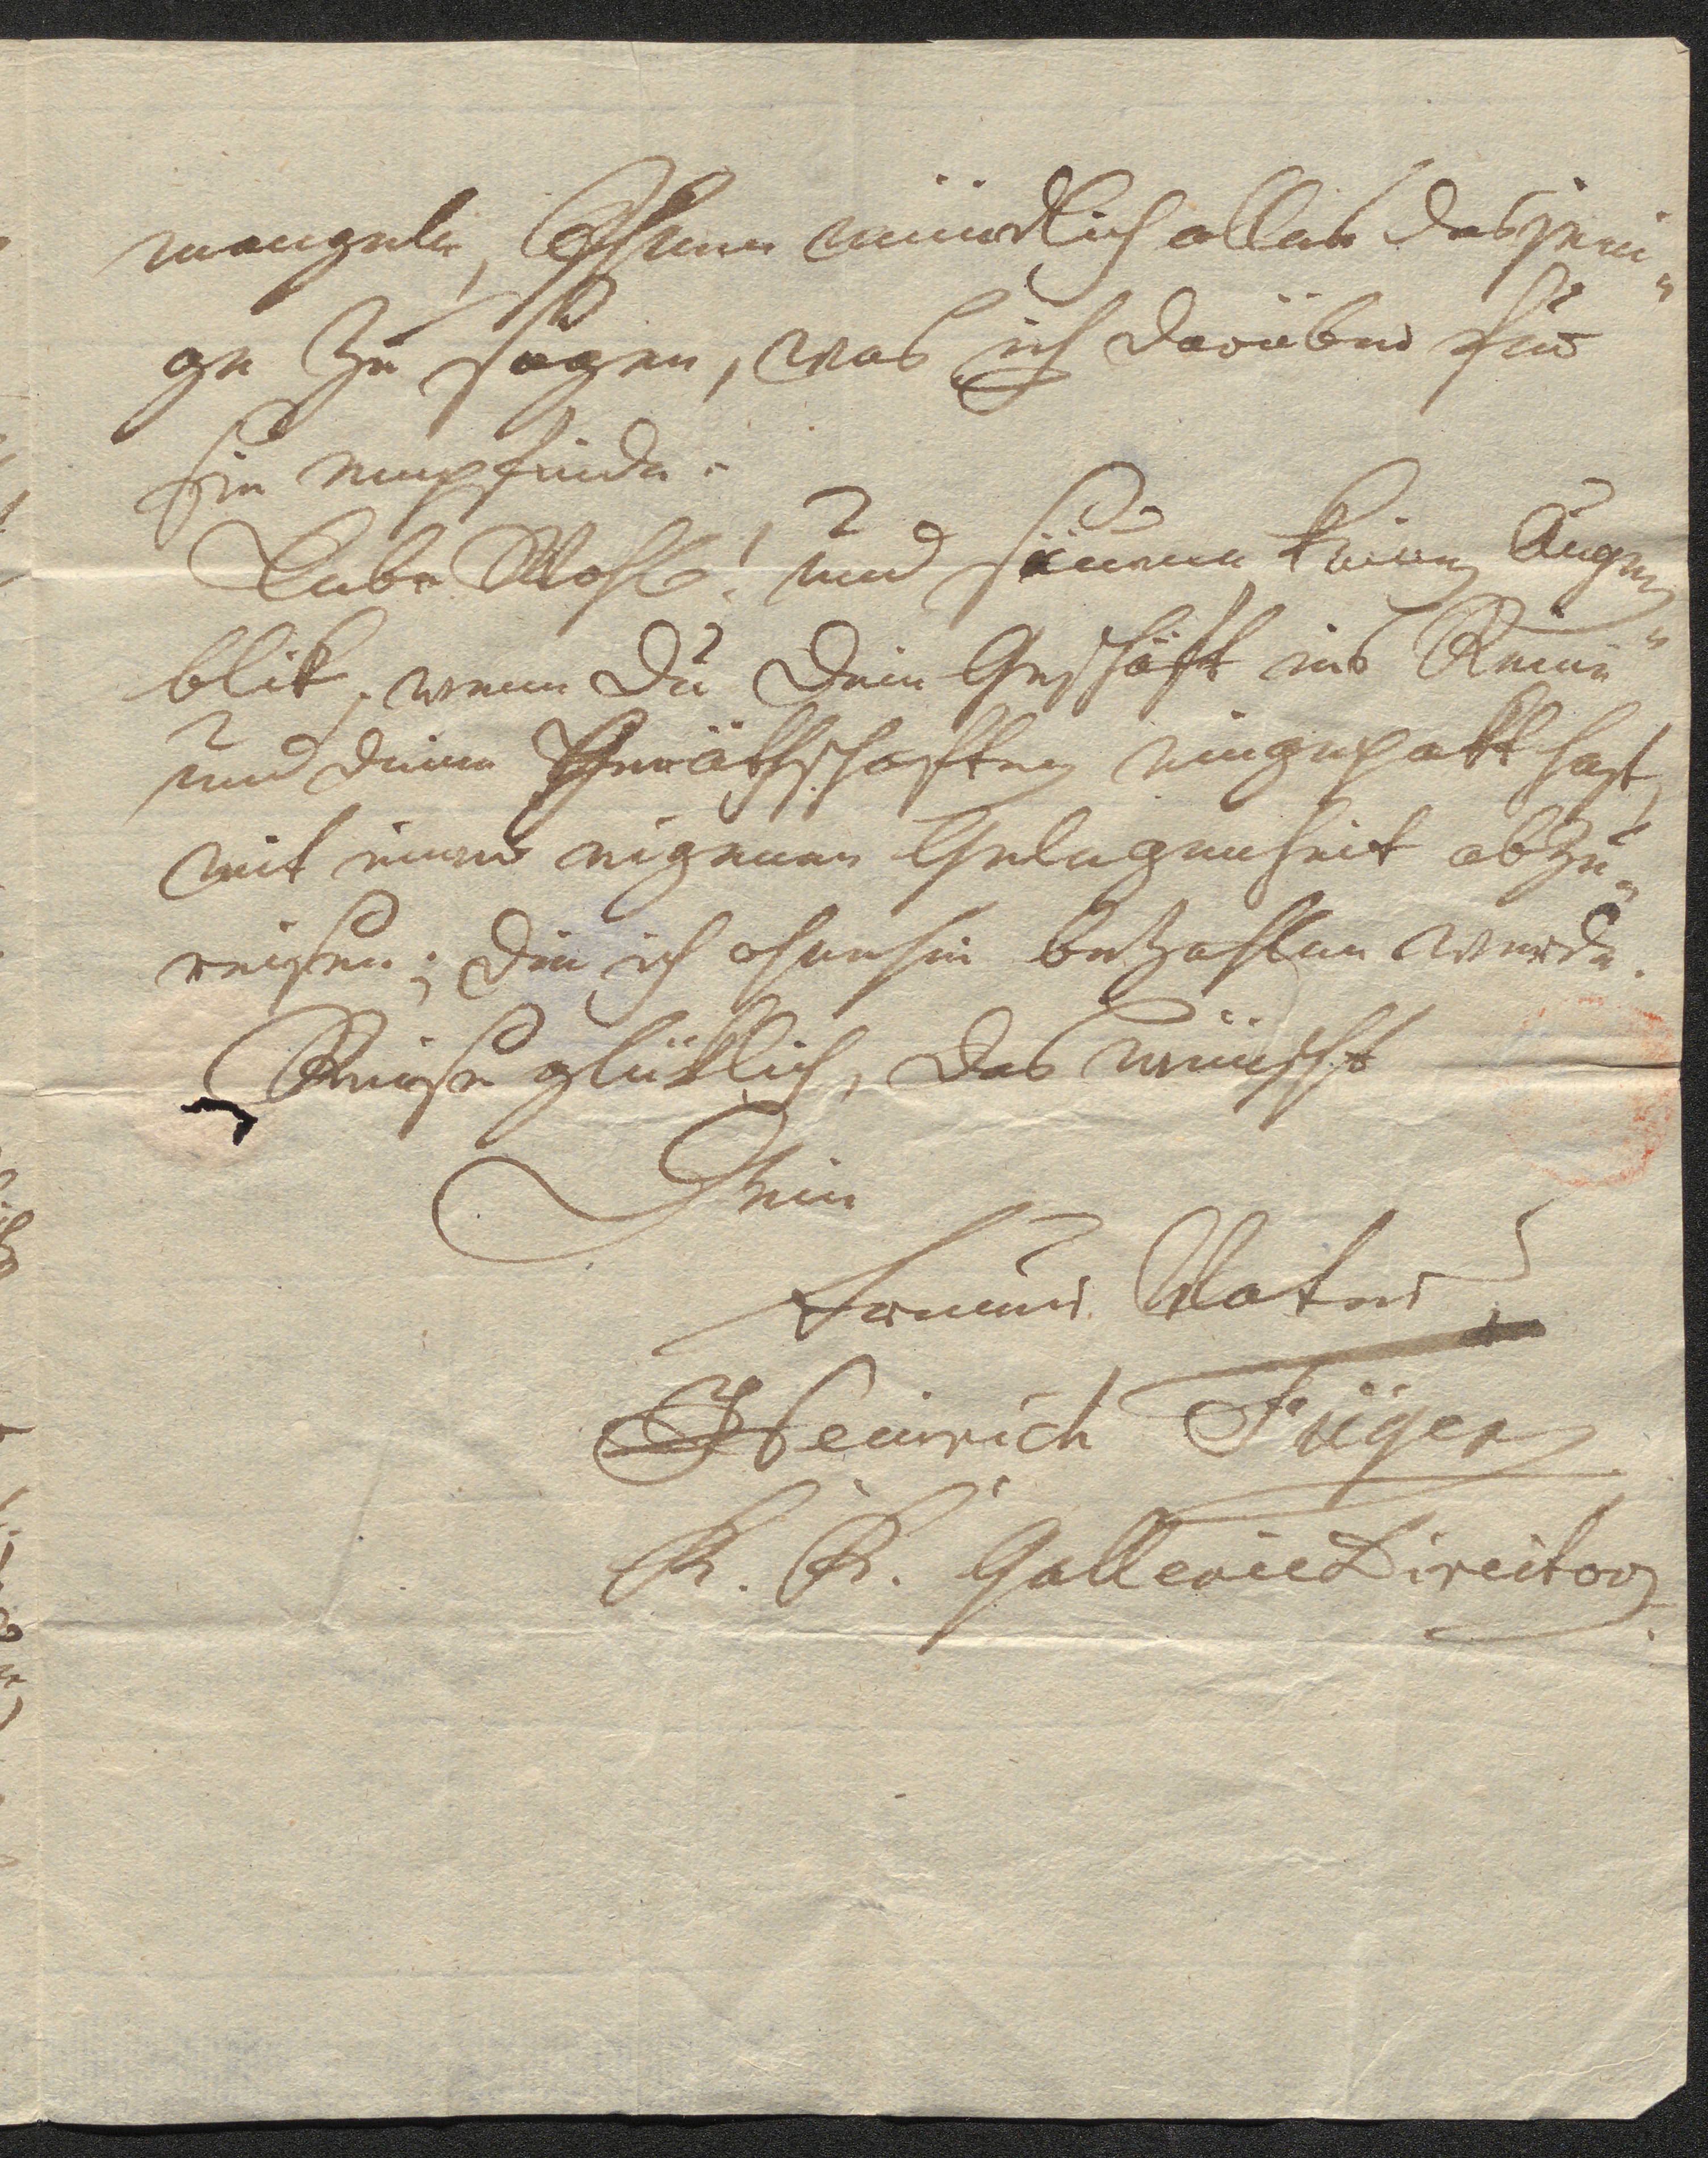 mangeln, Ihnen mündlich alles dasjeni„
ge zu sagen, was ich darüber für
Sie empfinde.
Lebe Wohl! und säume keinen Augen„
blik, wenn Du Dein Geschäft ins Reine
und deine Geräthschaften eingepakt hast,
mit einer eigenen Gelegenheit abzu„
reisen; die ich ohnehin bezahlen werde.
Reise glüklich, das wünscht
Dein
treuer Vater
Heinrich Füger
K. K. Gallerie Director